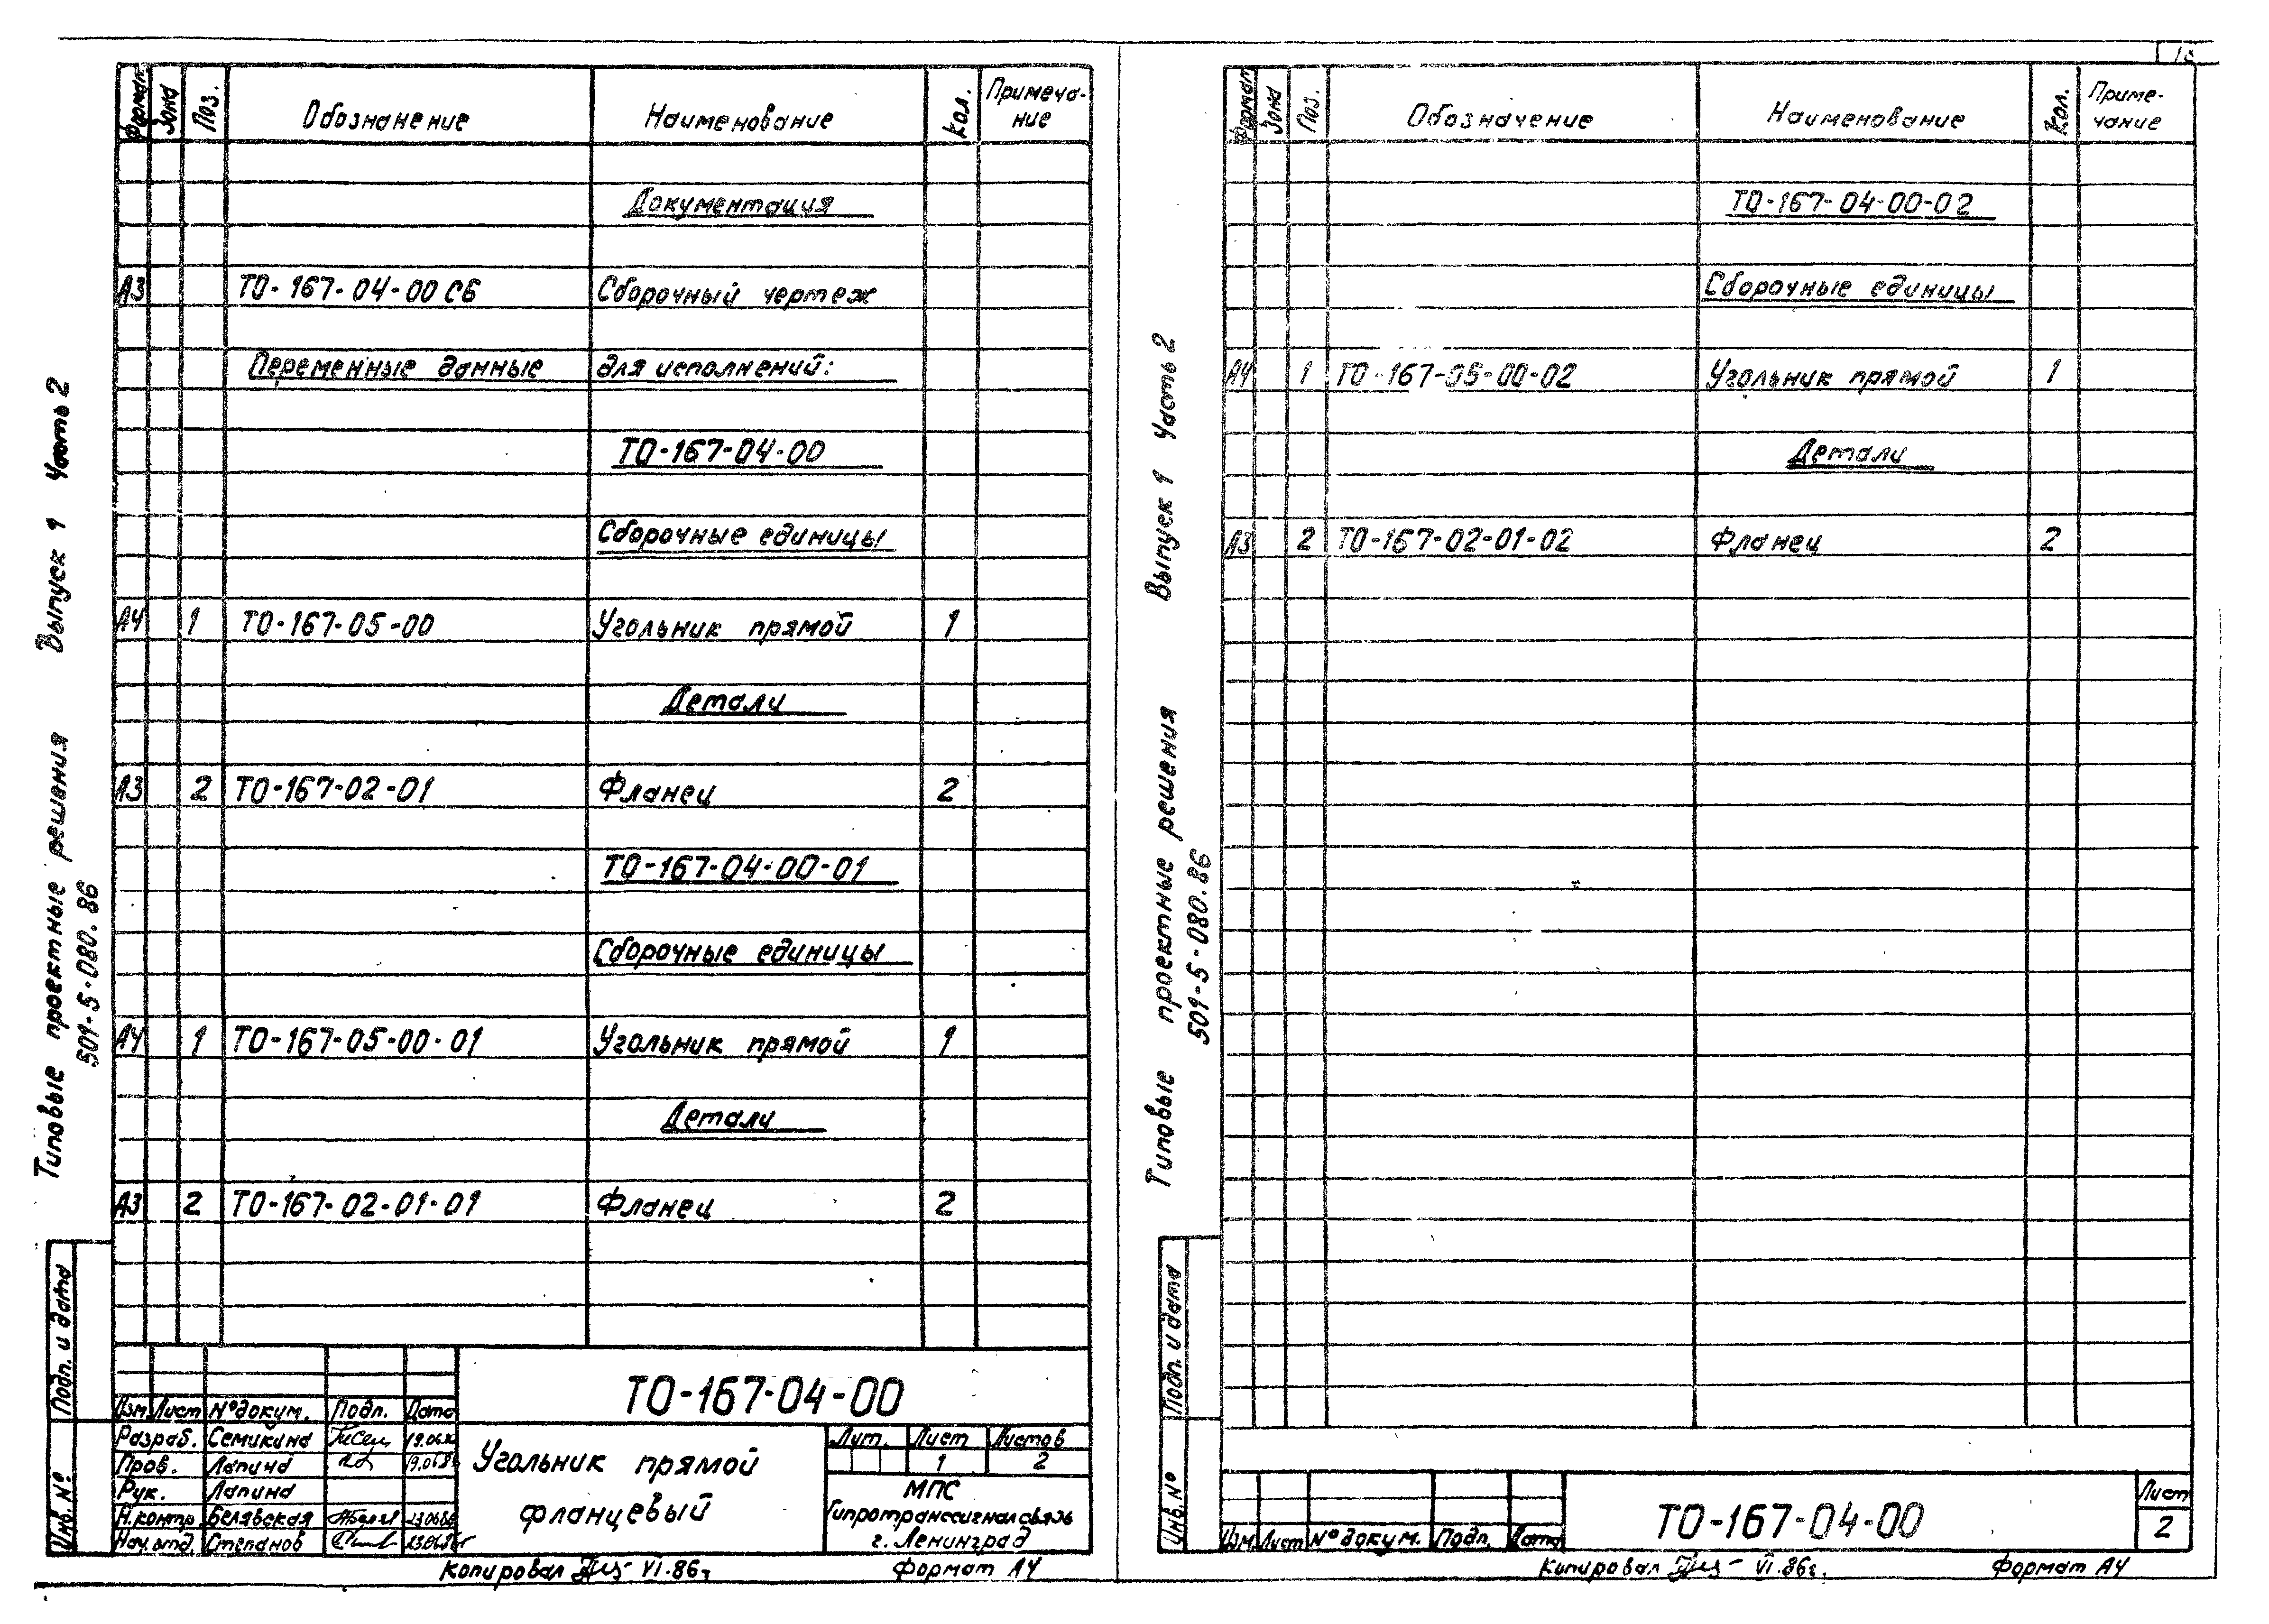 Формат Зона Поз. Обозначение Наименование Кол. Примеча-
ние
Документация
А3 ТО-167-04-00 СБ Сборочный чертеж
Переменные данные для исполнений:
ТО-167-04-00
Сборочные единицы
А4 1 ТО-167-05-00 Угольник прямой 1
Детали
А3 2 ТО-167-02-01 Фланец 2
ТО-167-04-00-01
Сборочные единицы
А4 1 ТО-167-05-00-01 Угольник прямой 1
Детали
А3 2 ТО-167-02-01-01 Фланец 2
Типовые проектные решения Выпуск 1 Часть 2
501-5-080.86
Подп. и дата
Инв. №
ТО-167-04-00
Изм. Лист № докум. Подп. Дата
Разраб. Семикина 19.06.86
Пров. Лапина 19.06.86
Рук. Лапина
Н.контр. Белявская 23.06.86
Нач. отд. Степанов 23.06.86г
Угольник прямой
фланцевый
Лит. Лист Листов
1 2
МПС
Гипротранссигналсвязь
г. Ленинград
Копировал VI.86г. Формат А4
Формат Зона Поз. Обозначение Наименование Кол. Приме-
чание
ТО-167-04-00-02
Сборочные единицы
А4 1 ТО-167-05-00-02 Угольник прямой 1
Детали
А3 2 ТО-167-02-01-02 Фланец 2
Типовые проектные решения Выпуск 1 Часть 2
501-5-080.86
Подп. и дата
Инв. №
Изм. Лист № докум. Подп. Дата
ТО-167-04-00
Лист
2
Копировал VI.86г. Формат А4